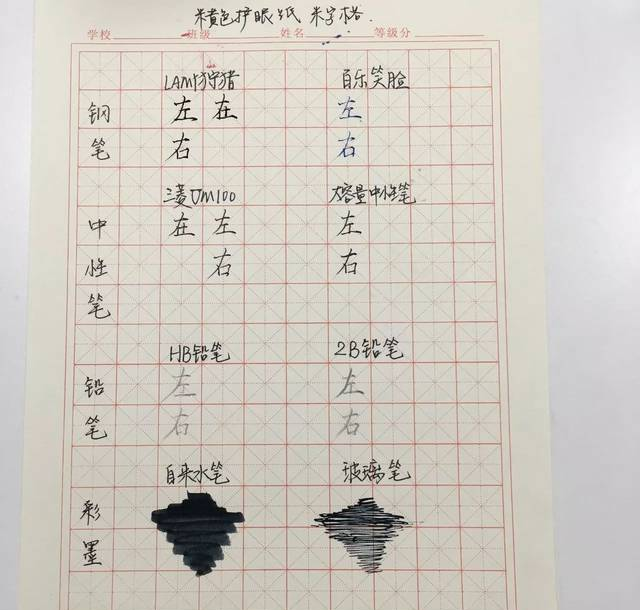 米黄色护眼纸 米字格.
学校 班级 姓名 等级分
LAMY狩猎 百乐笑脸
钢 左 在 左
笔 右 右
三菱UM100 大容量中性笔
中 在 左 左
性 右 右
笔
HB铅笔 2B铅笔
铅 左 左
笔 右 右
自来水笔 玻璃笔
彩
墨